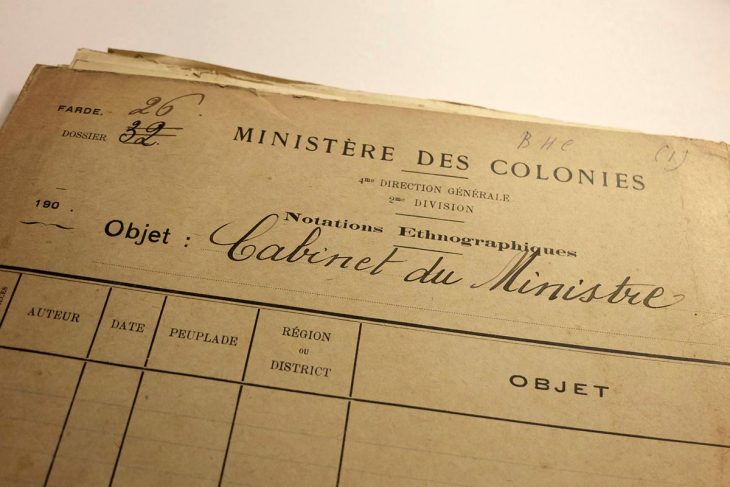 FARDE. 26.
DOSSIER 32
BHC (1)
MINISTÈRE DES COLONIES
4me DIRECTION GÉNÉRALE
2me DIVISION
190 .
Notations Ethnographiques
Objet : Cabinet du Ministre
AUTEUR DATE PEUPLADE RÉGION OU DISTRICT OBJET